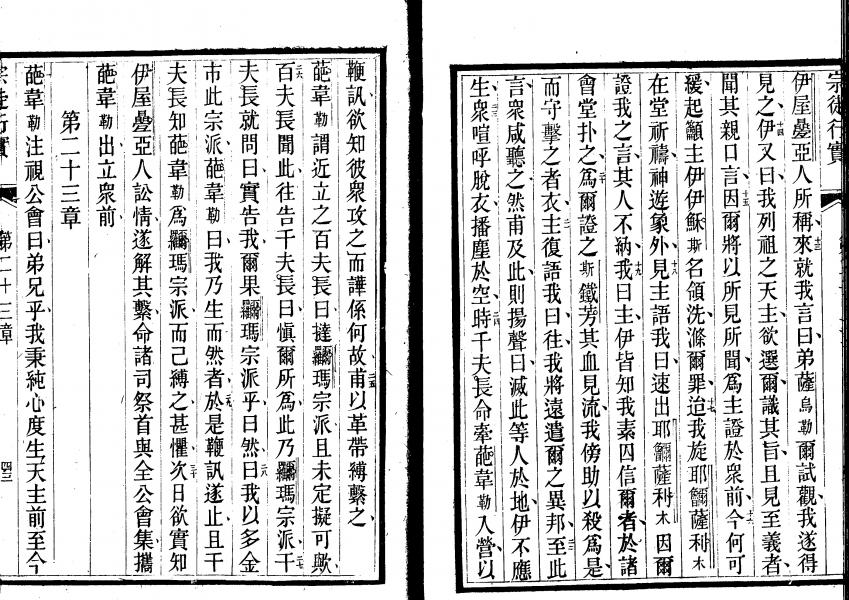 宗徒行實
伊屋疊亞人所稱來就我言曰弟薩烏勒爾試觀我遂得
見之伊又曰我列祖之天主欲選爾識其旨且見至義者
聞其親口言因爾將以所見所聞為主證於衆前今何可
緩起籲主伊伊穌斯名領洗滌爾罪迨我旋耶薩利木
在堂祈禱神遊象外見主語我曰速出耶薩利木因爾
證我之言其人不納我曰主伊皆知我素囚信爾者於諸
會堂扑之為爾證之斯鐵芳其血見流我傍助以殺為是
而守擊之者衣主復語我曰往我將遠遣爾之異邦至此
言衆咸聽之然甫及此則揚聲曰滅此等人於地伊不應
生衆喧呼脫衣播塵於空時千夫長命牽葩韋勒入營以
鞭訊欲知彼衆攻之而譁係何故甫以革帶縛繫之
葩韋勒謂近立之百夫長曰撻羅瑪宗派且未定擬可歟
百夫長聞此往告千夫長曰慎爾所為此乃羅瑪宗派千
夫長就問曰實告我爾果羅瑪宗派乎曰然曰我以多金
市此宗派葩韋勒曰我乃生而然者於是鞭訊遂止且千
夫長知葩韋勒為羅瑪宗派而已縛之甚懼次日欲實知
伊屋疊亞人訟情遂解其繫命諸司祭首與全公會集攜
葩韋勒出立衆前
第二十三章
葩韋勒注視公會曰弟兄乎我秉純心度生天主前至今
宗徒行實
第二十三章
四三